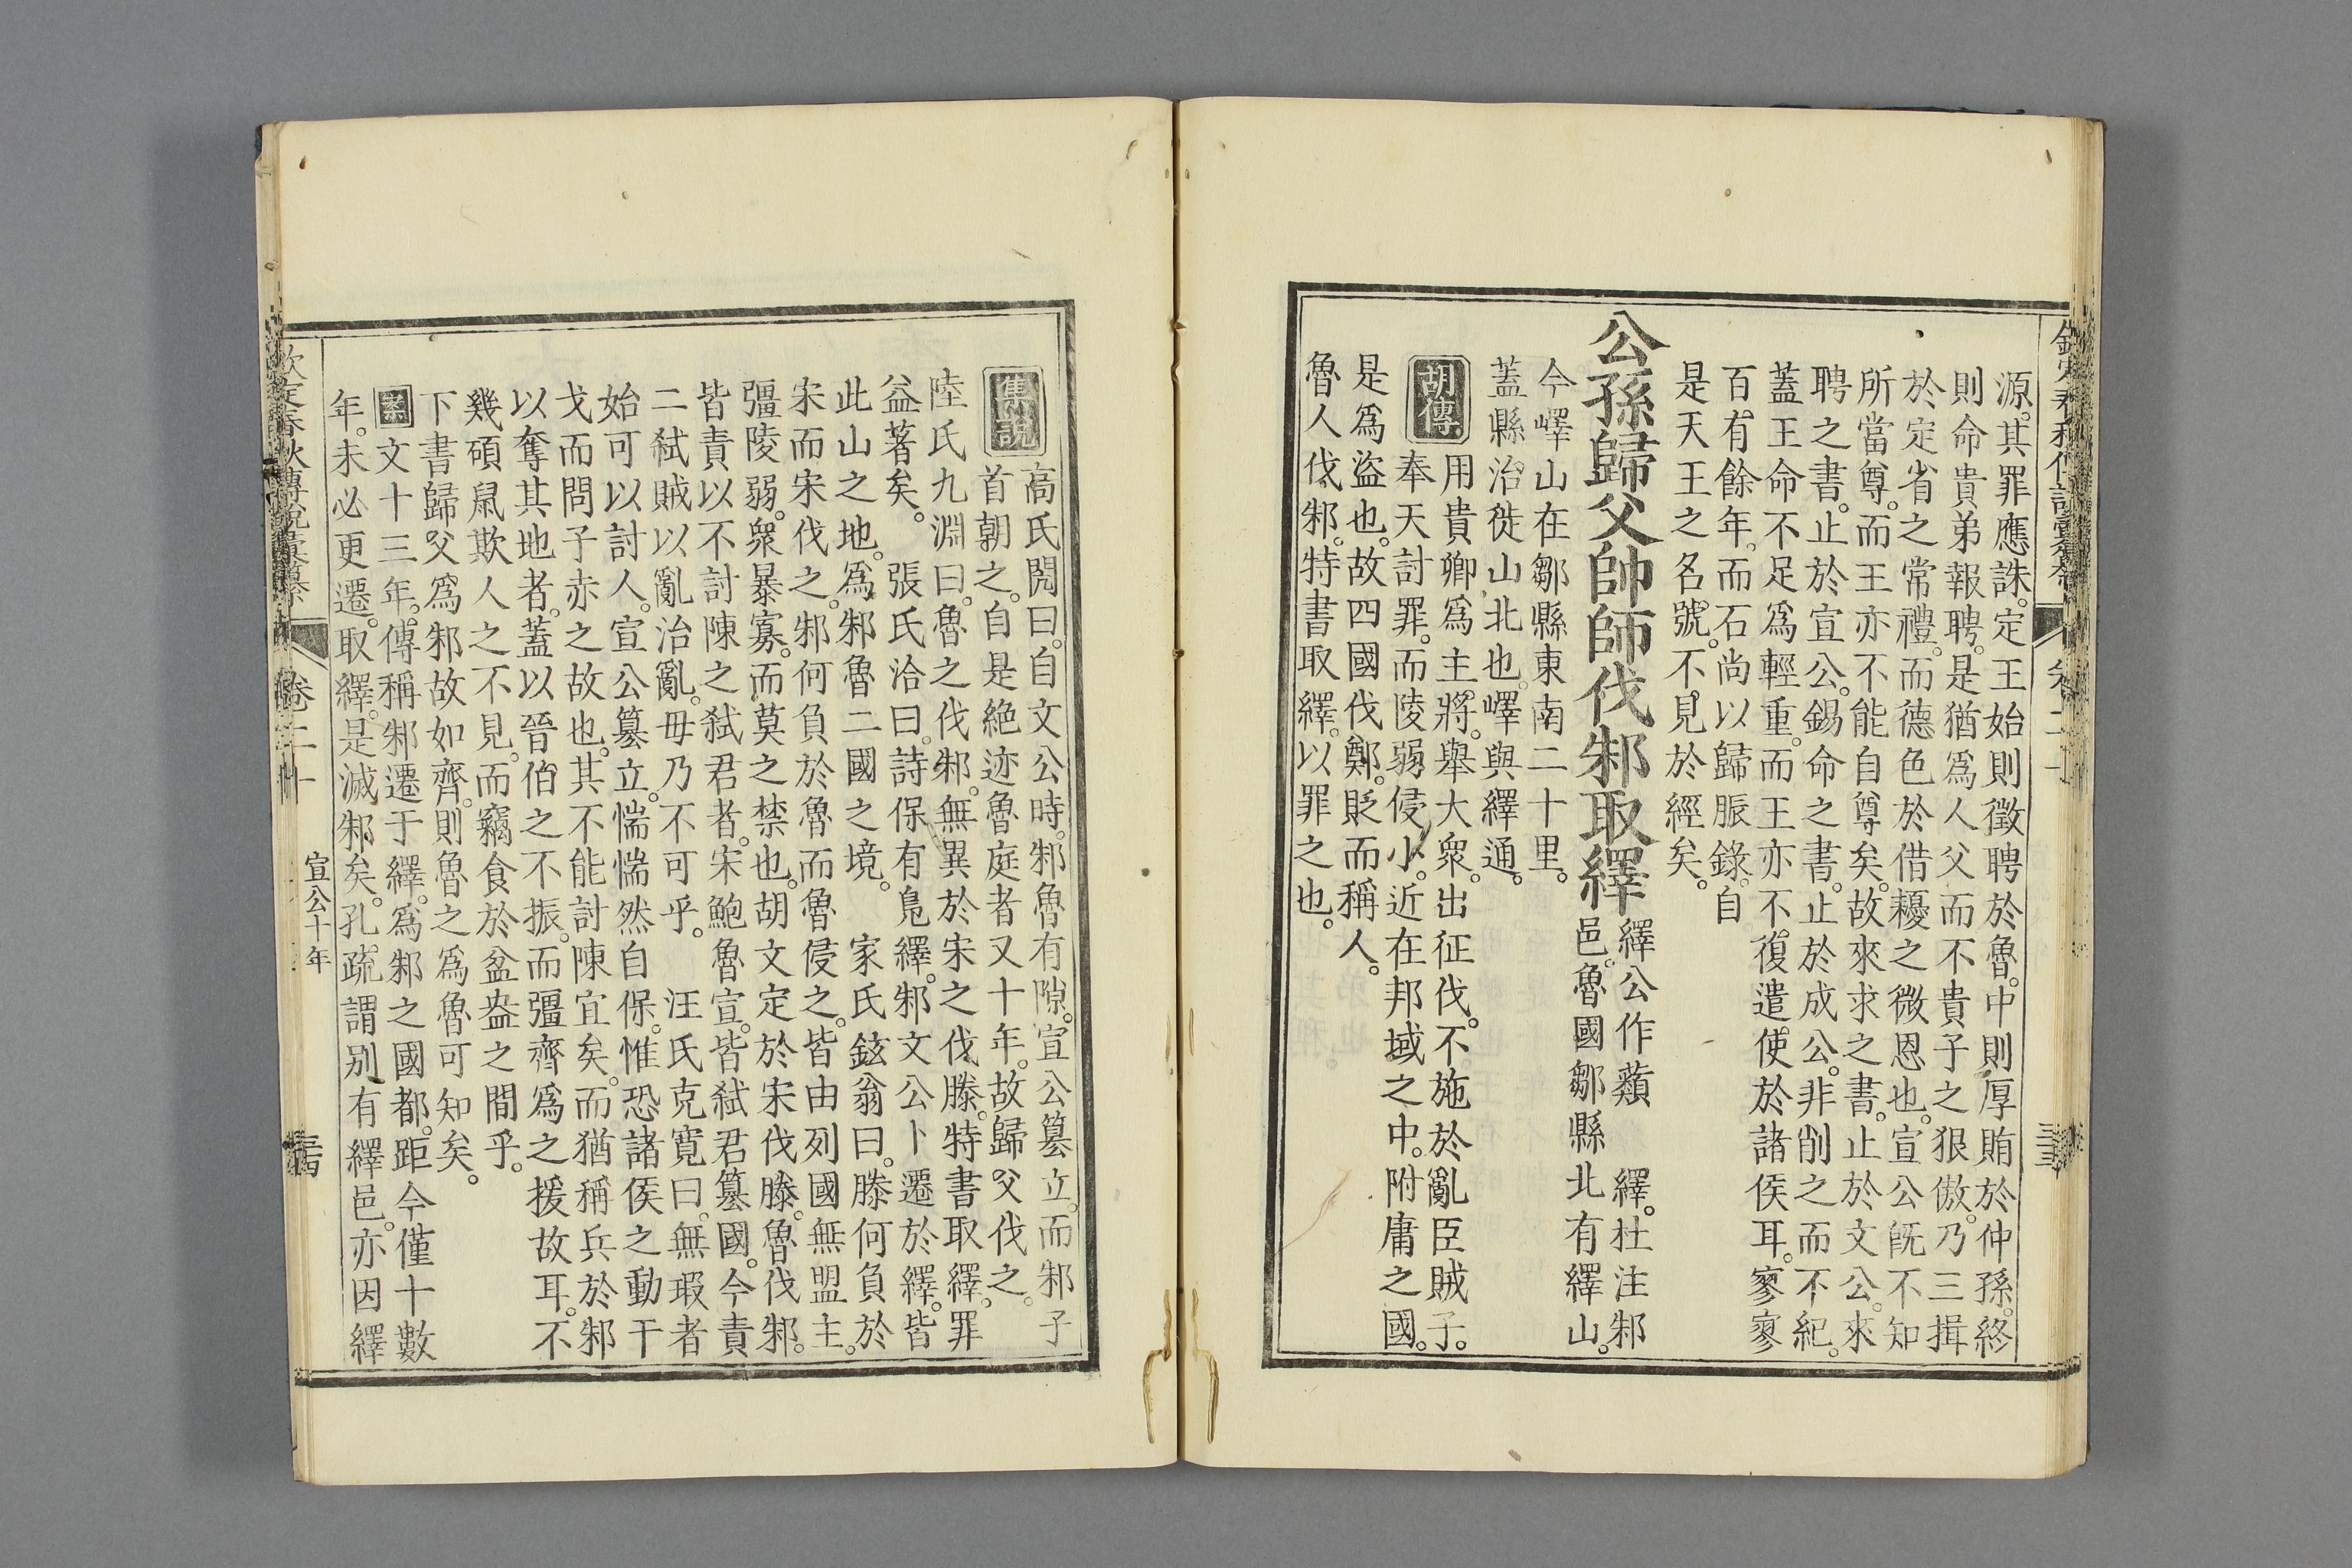 源其罪應誅。定王始則徵聘於魯。中則厚賄於仲孫。終
則命貴弟報聘。是猶爲人父而不貴子之狠傲。乃三揖
於定省之常禮。而德色於借耰之微恩也。宣公旣不知
所當尊。而王亦不能自尊矣。故來求之書。止於文公。來
聘之書。止於宣公。錫命之書。止於成公。非削之而不紀。
蓋王命不足爲輕重。而王亦不復遣使於諸侯耳。寥寥
百有餘年。而石尚以歸脤錄。自
是天王之名號。不見於經矣。
公孫歸父帥師伐邾取繹
繹公作蘱 繹。杜注邾
邑。魯國鄒縣北有繹山。
今嶧山在鄒縣東南二十里。
蓋縣治徙山北也。嶧與繹通。
胡傳
用貴卿爲主將。舉大衆。出征伐。不施於亂臣賊子。
奉天討罪。而陵弱侵小。近在邦域之中。附庸之國。
是爲盜也。故四國伐鄭。貶而稱人。
魯人伐邾。特書取繹。以罪之也。
集說
高氏閌曰。自文公時。邾魯有隙。宣公簒立。而邾子
首朝之。自是絶迹魯庭者又十年。故歸父伐之。
陸氏九淵曰。魯之伐邾。無異於宋之伐滕。特書取繹。罪
益著矣。 張氏洽曰。詩保有鳧繹。邾文公卜遷於繹。皆
此山之地。爲邾魯二國之境。 家氏鉉翁曰。滕何負於
宋而宋伐之。邾何負於魯而魯侵之。皆由列國無盟主。
彊陵弱。衆暴寡。而莫之禁也。胡文定於宋伐滕。魯伐邾。
皆責以不討陳之弑君者。宋鮑魯宣。皆弑君簒國。今責
二弑賊以亂治亂。毋乃不可乎。 汪氏克寬曰。無瑕者
始可以討人。宣公簒立。惴惴然自保。惟恐諸侯之動干
戈而問子赤之故也。其不能討陳宜矣。而猶稱兵於邾
以奪其地者。蓋以晉伯之不振。而彊齊爲之援故耳。不
幾碩鼠欺人之不見。而竊食於盆盎之間乎。
下書歸父爲邾故如齊。則魯之爲魯可知矣。
案
文十三年。傳稱邾遷于繹。爲邾之國都。距今僅十數
年。未必更遷。取繹。是滅邾矣。孔疏謂别有繹邑。亦因繹
欽定春秋傳說彙纂
卷二十
宣公十年